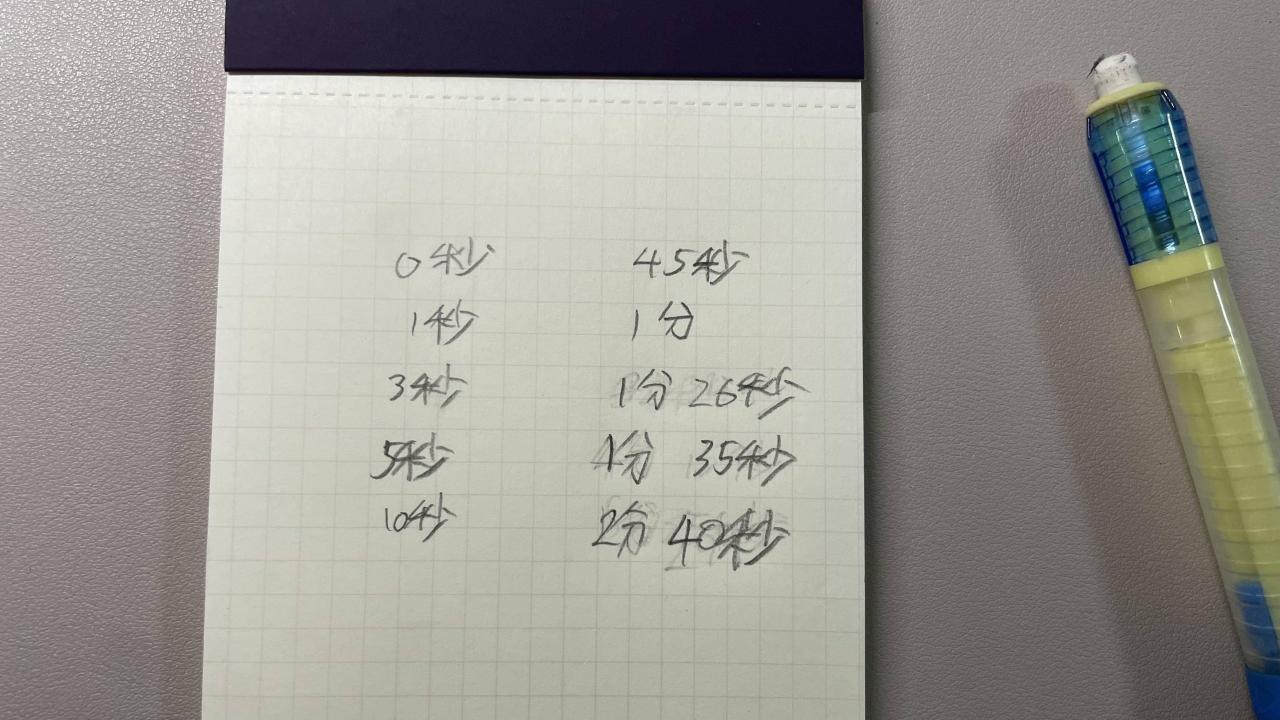 0秒
1秒
3秒
5秒
10秒
45秒
1分
1分 26秒
1分 35秒
2分 40秒